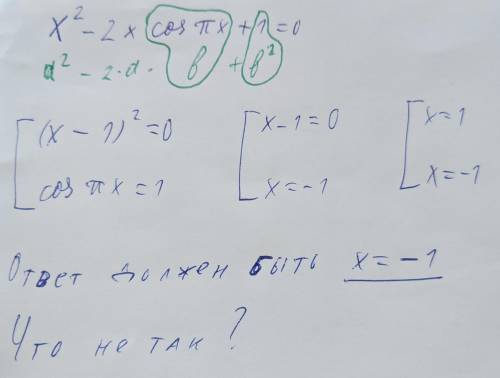 x² - 2x cos πx + 1 = 0
a² - 2·a· b + b²
[ (x - 1)² = 0 [ x - 1 = 0 [ x = 1
cos πx = 1 x = -1 x = -1
Ответ должен быть x = -1
Что не так?